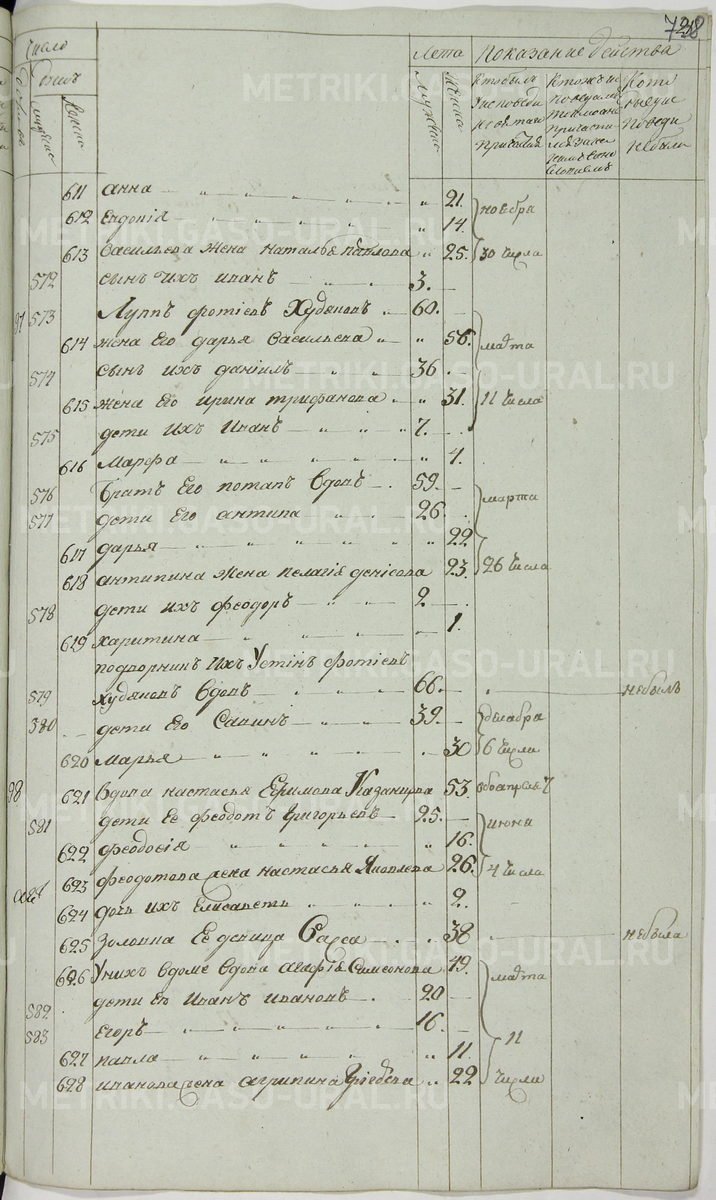 738
Число
Лета
Показание действа
Людей
домовъ
Мужеска
Женска
Мужеска
Женска
Кто были
у исповеди
и святаго
причастия
Кто же ис
поведали
токмо а не
причасти
лися
Кто
не были
METRIKI.GASO-URAL.RU
611 анна 21. ноебра
612 Евдокія 14.
613 василъева жена наталья павлова 25. 30 числа
572 сынъ ихъ иванъ 3.
97 573 Луппъ фотіевъ Худяковъ 60.
614 жена его дарья васильева 56. марта
574 сынъ ихъ даніилъ 36
615 жена его ирина трифанова 31. 11 числа
575 дети ихъ Иванъ 7.
616 Марфа 4.
576 братъ Его потапъ вдовъ 59. марта
577 дети Его антипа 26.
617 дарья 22
618 антипина жена пелагія денісова 23. 26 числа
578 дети ихъ феодоръ 2
619 харитина 1.
подворникъ ихъ Устинъ фотіевъ
579 худяковъ вдовъ 66. небылъ
380 дети Его Савинъ 39. декабра
620 марья 30 6 числа
98 621 вдова настасья Ефимова Казанцова 53.
581 дети Ее феодотъ григорьевъ 25. июня
622 феодосія 16.
623 феодотова жена настасья Яковлева 26. 4 числа
624 дочь ихъ Елисаветъ 2.
625 золовка Ее девица Сарса 38 небыла
626 У нихъ вдоме вдова агафія Симеонова 49. марта
582 дети ея Иванъ ивановъ 20
583 Егоръ 16. 11
627 павла 11.
628 иванова жена агрипина 22 числа